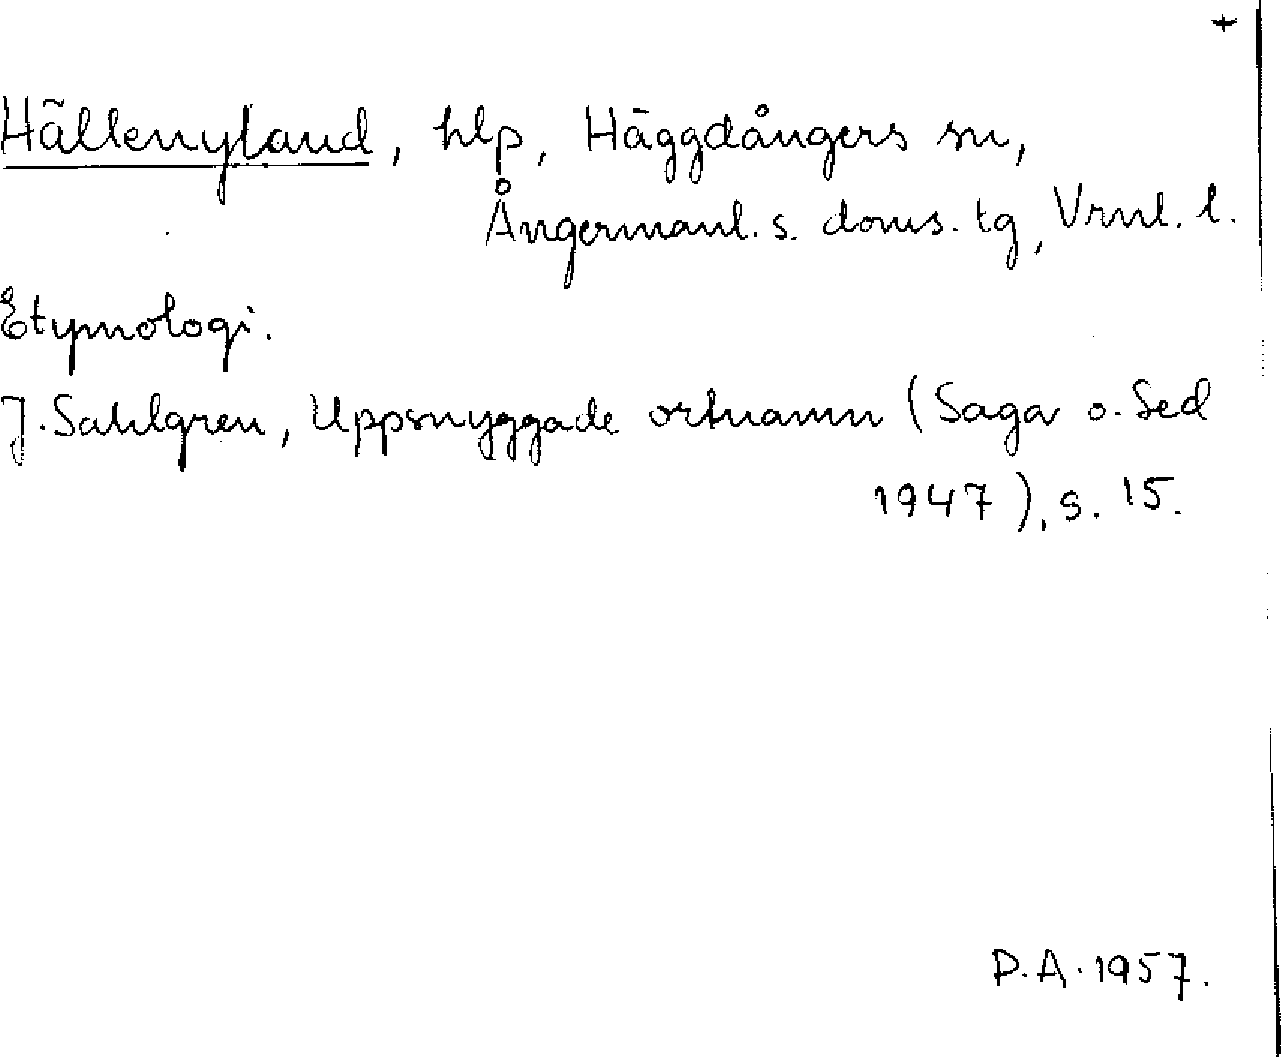 +
Hällenyland, hlp, Häggdångers sn,
Ångermanl. s. doms. tg, Vrnl. l.
Etymologi.
J. Sahlgren, Uppsnyggade ortnamn (Saga o. Sed
1947), s. 15.
D.A. 1957.